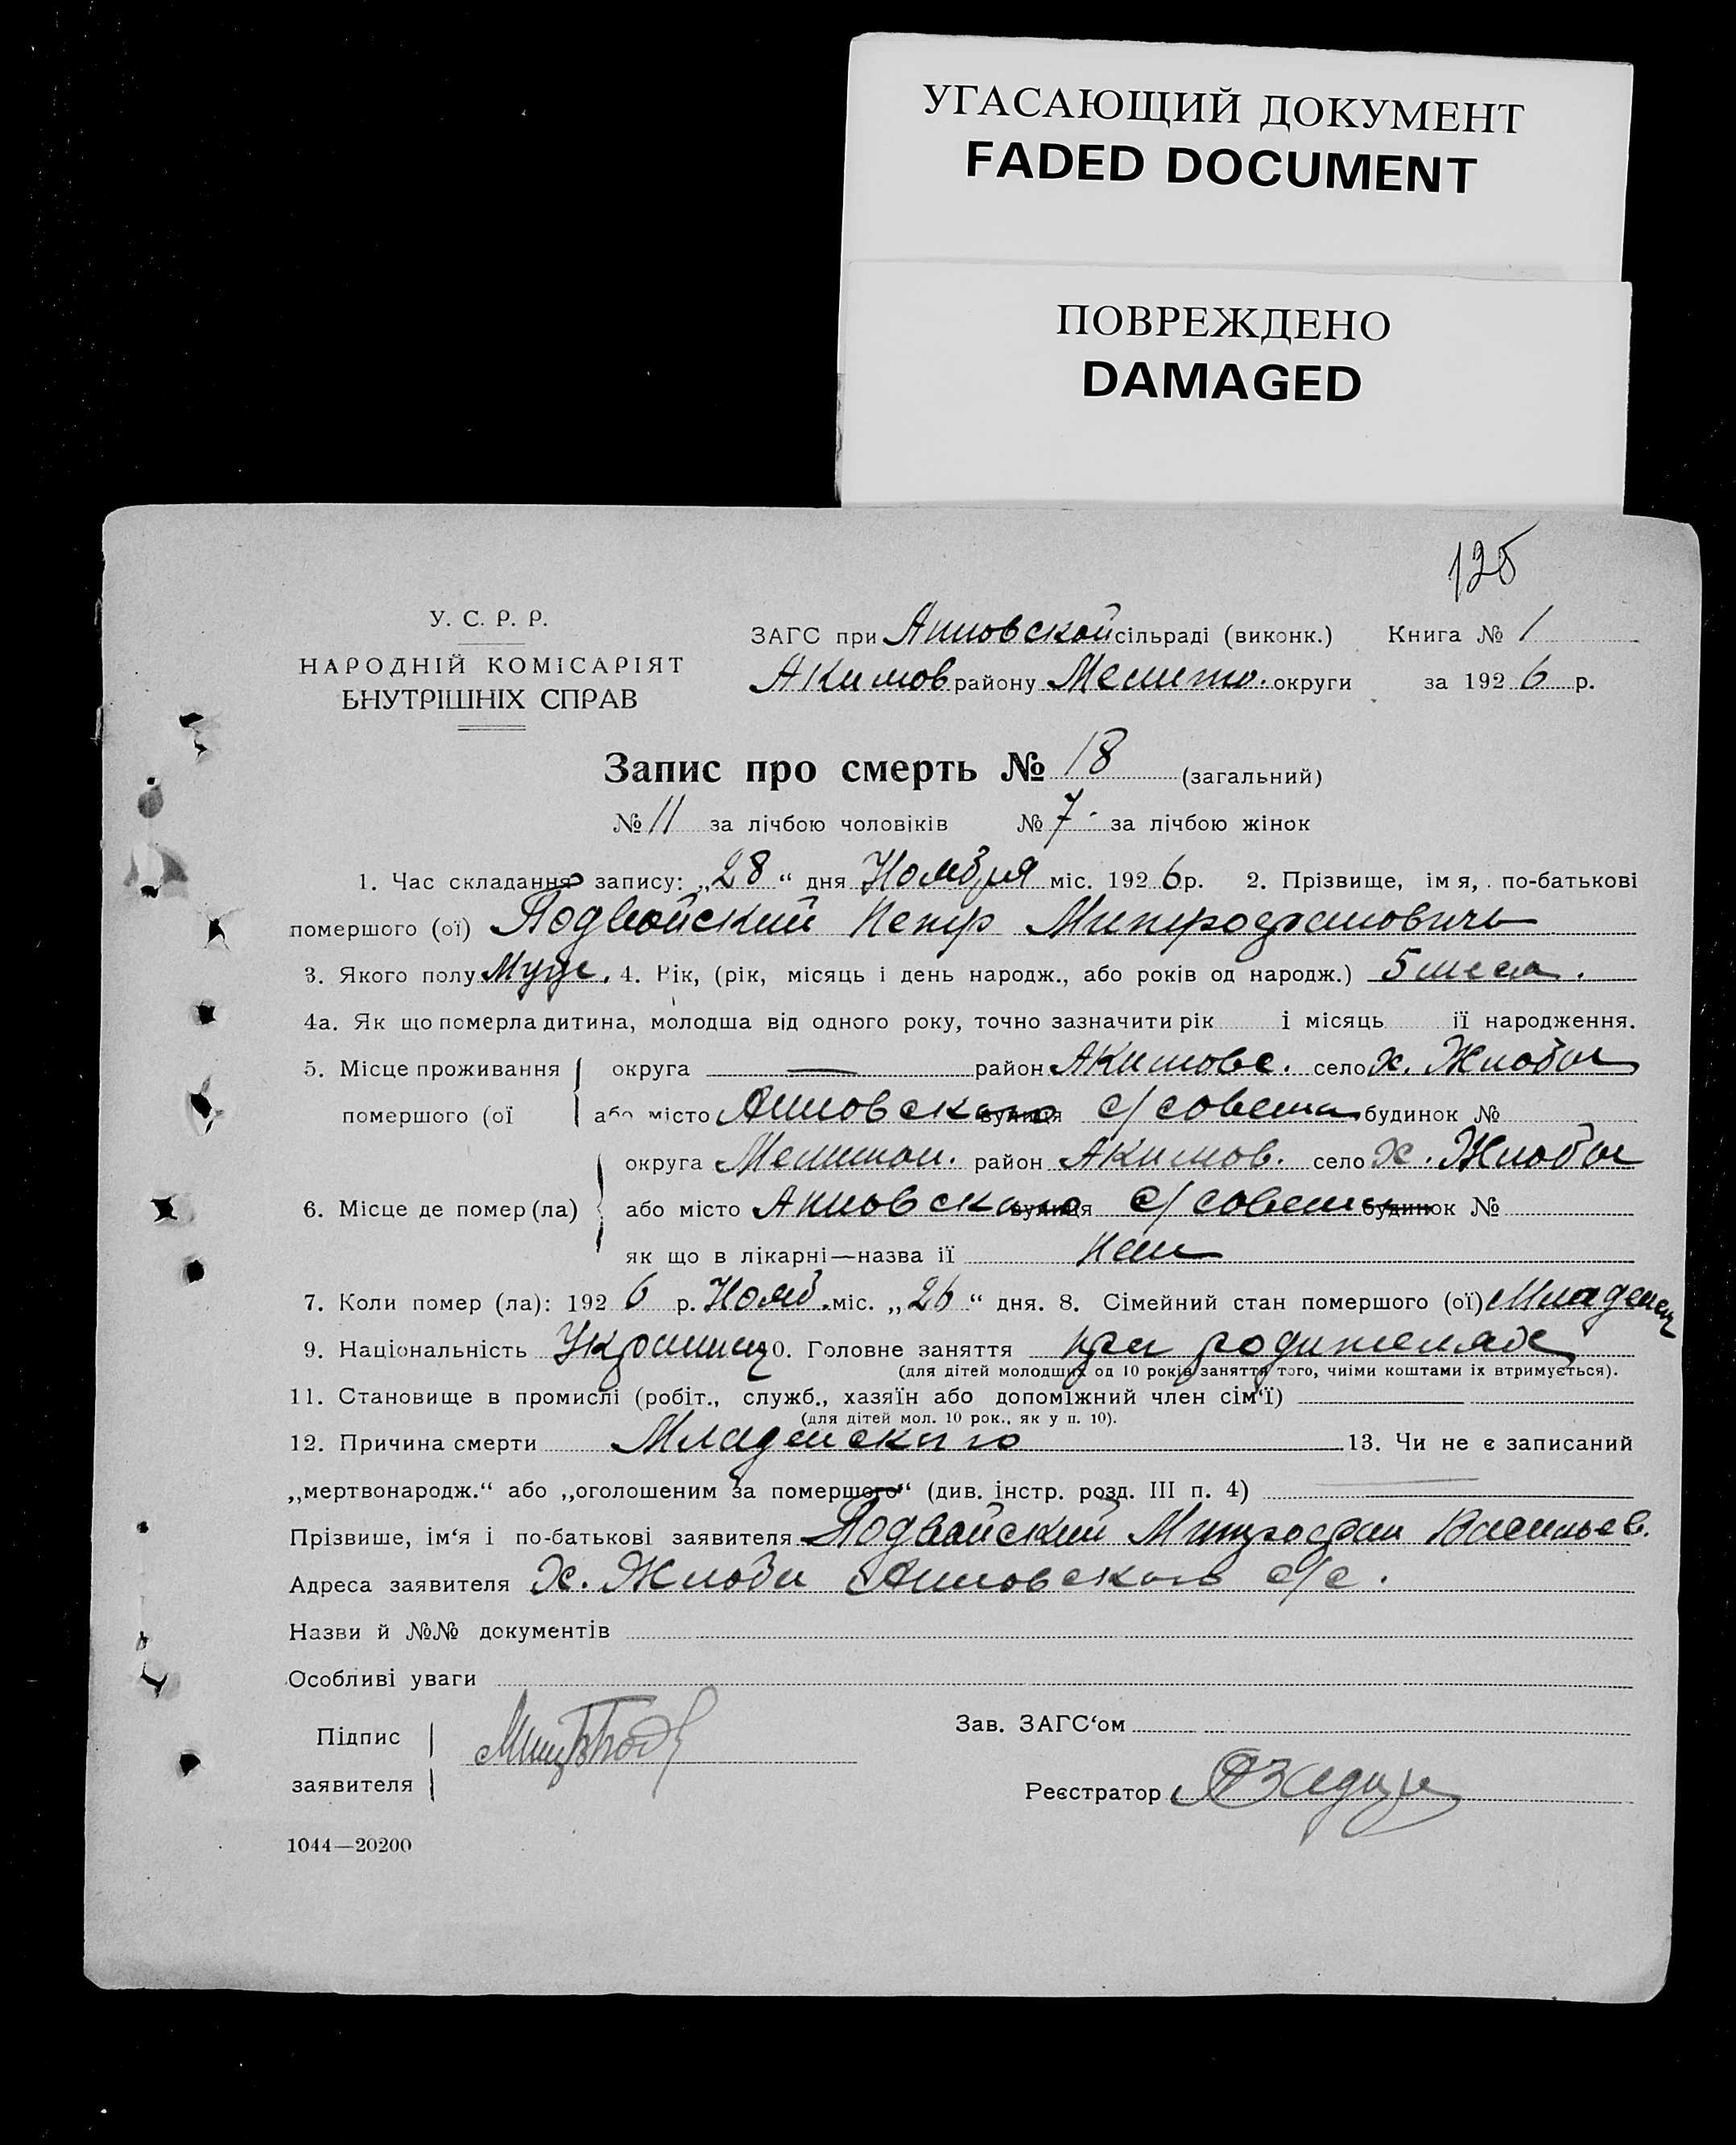 УГАСАЮЩИЙ ДОКУМЕНТ
FADED DOCUMENT
ПОВРЕЖДЕНО
DAMAGED
125
У. С. Р. Р.
НАРОДНІЙ КОМІСАРІЯТ
ВНУТРІШНІХ СПРАВ
ЗАГС при Анновской сільраді (виконк.) Книга № 1
Акимов району Мелито. округи за 1926 р.
Запис про смерть № 18 (загальний)
№ 11 за лічбою чоловіків № 7 за лічбою жінок
1. Час складання запису: „28“ дня Ноября міс. 1926 р. 2. Прізвище, імя, по-батькові
помершого (ої) Подвойский Петр Митрофанович
3. Якого полу Муж. 4. Вік, (рік, місяць і день народж., або років од народж.) 5 меся.
4а. Як що померла дитина, молодша від одного року, точно зазначити рік і місяць її народження.
5. Місце проживання округа — район Акимове. село х. Жлобы
помершого (ої або місто Анновского вулиця с/совета будинок №
округа Мелитоп. район Акимов. село х. Жлобы
6. Місце де помер (ла) або місто Анновского вулиця с/совета будинок №
як що в лікарні—назва її Нет
7. Коли помер (ла): 1926 р. Нояб. міс. „26“ дня. 8. Сімейний стан помершого (ої) Младенец
9. Національність Украинец 10. Головне заняття при родителях
(для дітей молодших од 10 років заняття того, чиіми коштами їх втримується).
11. Становище в промислі (робіт., служб., хазяїн або допоміжний член сім‘ї) —
(для дітей мол. 10 рок., як у п. 10).
12. Причина смерти Младенского 13. Чи не є записаний
„мертвонародж.“ або „оголошеним за помершого“ (див. інстр. розд. III п. 4) —
Прізвище, ім‘я і по-батькові заявителя Подвойский Митрофан Васильев.
Адреса заявителя х. Жлобы Анновского с/с.
Назви й №№ документів
Особливі уваги
Підпис
заявителя
Зав. ЗАГС‘ом
Реєстратор
1044—20200